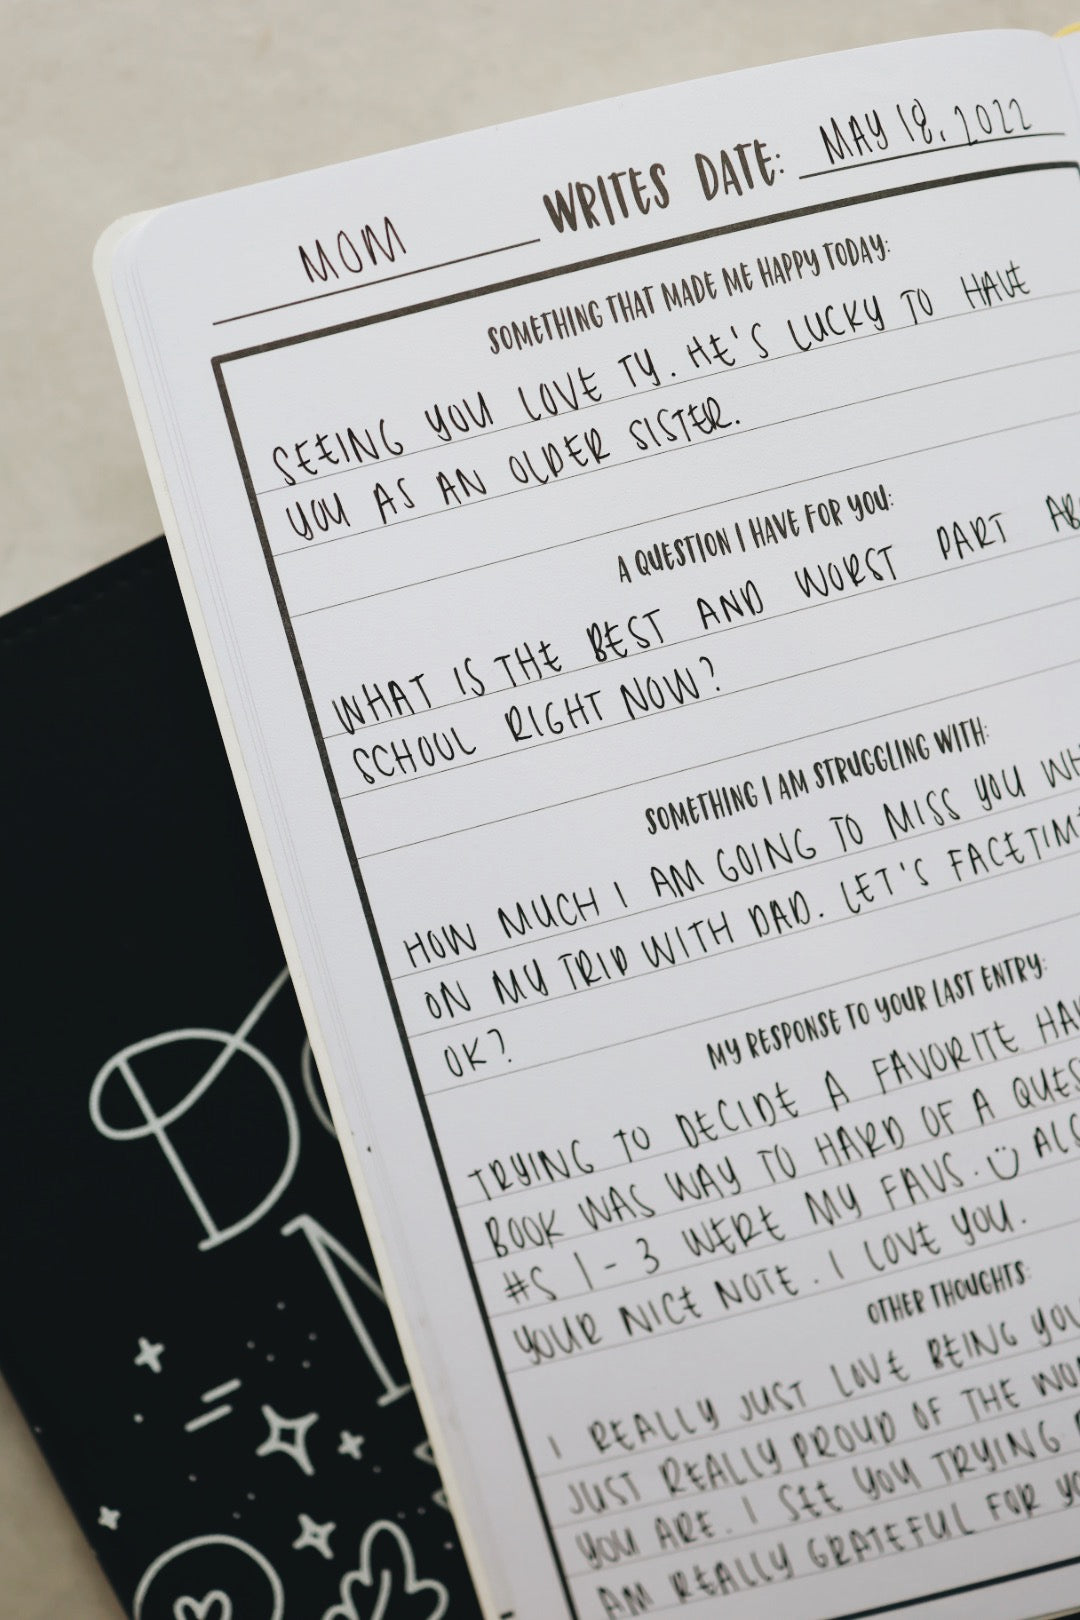 MOM WRITES DATE: MAY 18, 2022
SOMETHING THAT MADE ME HAPPY TODAY:
SEEING YOU LOVE TY. HE'S LUCKY TO HAVE
YOU AS AN OLDER SISTER.
A QUESTION I HAVE FOR YOU:
WHAT IS THE BEST AND WORST PART
SCHOOL RIGHT NOW?
SOMETHING I AM STRUGGLING WITH:
HOW MUCH I AM GOING TO MISS YOU
ON MY TRIP WITH DAD. LET'S FACETIM
OK?
MY RESPONSE TO YOUR LAST ENTRY:
TRYING TO DECIDE A FAVORITE
BOOK WAS WAY TO HARD OF A QUES
#S 1-3 WERE MY FAVS. ALS
YOUR NICE NOTE. I LOVE YOU.
OTHER THOUGHTS:
I REALLY JUST LOVE BEING YOU
JUST REALLY PROUD OF THE
YOU ARE. I SEE YOU TRYING
AM REALLY GRATEFUL FOR